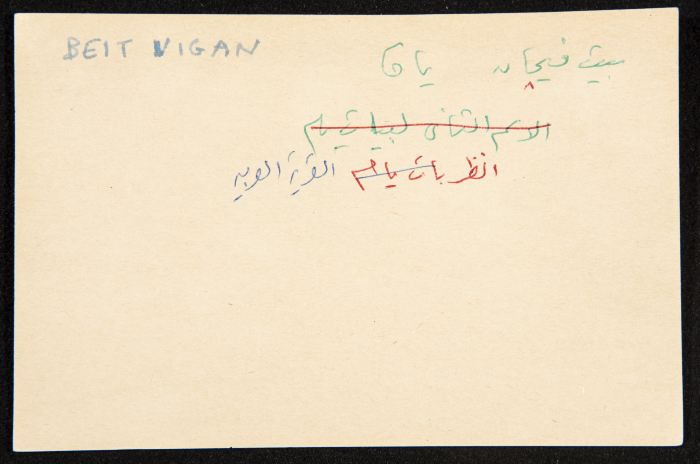 BEIT VIGAN
بيت فيجان يافا
الاسم الثاني لبيات يام
انظر بات يام القرية العربية